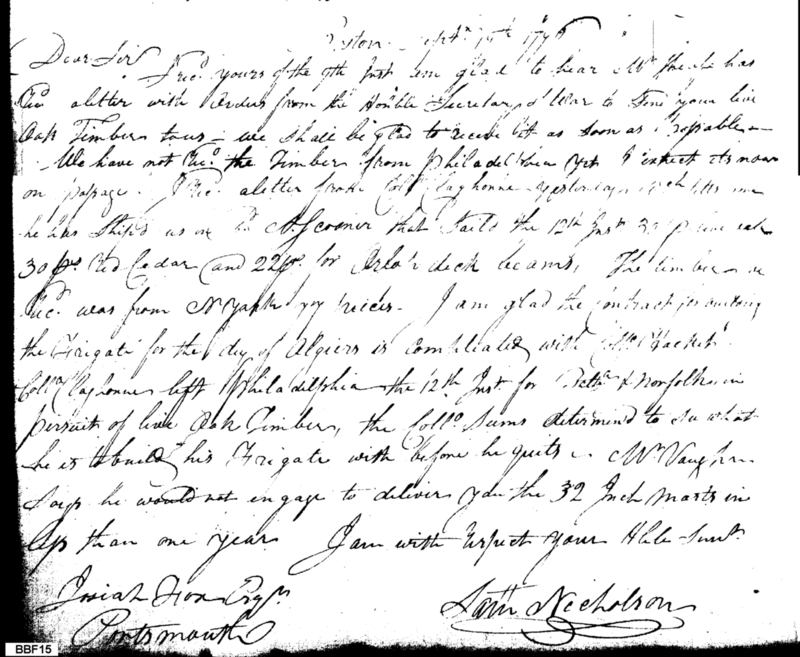 Boston Septr 15th 1796
Dear Sir
I recd yours of the 9th Inst am glad to hear Mr has
Recd a letter with orders from the Honble Secretary of War to Send your live
Oak Timber to us - we shall be glad to receive it as soon as possable -
We have not Recd the Timber from Philadelphia yet I expect its now
on passage. I Recd a letter from Collo Claghorne yesterday tells me
he has Ship'd us on bd a Scooner that Sail'd the 12th Inst live oak
30 ps Red Cedar and 22 ps for deck beams, The timber we
Recd was from N York 109 peices. I am glad the Contract for building
the Frigate for the dey of Algiers is compleated with Collo Hackett
Collo Claghorne left Philadelphia the 12th Inst for & Norfolk in
pursuit of live Oak Timber, the Collo Seems determind to see what
he is to build his Frigate with before he quits - Mr Vaughan
Says he would not engage to deliver you the 32 Inch Masts in
less than one year I am with respect your Hble Servt
Josiah Fox Esqr Saml Nicholson
Portsmouth
BBF15